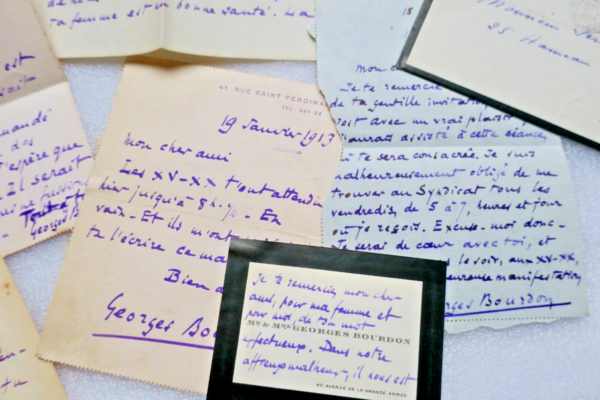 de nous
ta femme est en bonne santé. La
est
rait
mandé
dos
espère que
Il serait
Tout à toi
Georges B
41 RUE SAINT FERDINA
TÉL.
19 Janvier 1913
Mon cher ami
Les XV-XX t'ont attendu
hier jusqu'à 8h.70. En
vain. Et ils m'ont
ta l'écrire ce ma
Bien a
Georges Bou
18
mon c
Je te remercie
de ta gentille invitation
est avec un vrai plaisir
j'aurais assisté à cette séance,
qui te sera consacrée. Je suis
malheureusement obligé de me
trouver au Syndicat tous les
vendredis, de 5 à 7, heures et jour
où je reçois. Excuse-moi donc.
Je serai de cœur avec toi, et
le soir, aux XV-XX,
heureuse manifestation
rges Bourdon
Monsieur
25 Hameau
Je te remercie, mon cher
ami, pour ma femme et
pour moi, de ton mot
Mr & Mme GEORGES BOURDON
affectueux. Dans notre
affreux malheur, il nous est
40 AVENUE DE LA GRANDE ARMÉE